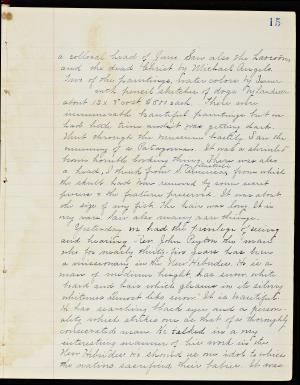 15
a collosal head of Juno. Saw also the Laocoön
and the dead Christ by Michael Angelo.
Two of the paintings, water colors by
inch pencil sketches of dogs by Landseer
about 12 x 8 cost $500 each. There were
innumerable beautiful paintings but we
had little time and it was getting dark.
Went through the museum hastily. Saw the
mummy of a Patagonian. It was a shriveled
brown horrible looking thing. There was also
a head, I think from S. America, from which
the skull had been removed by some secret
process & the features preserved. It was about
the size of my fist. The hair was long. It is
very rare. Saw also many rare things.
Yesterday we had the privilege of seeing
and hearing Rev. John Paton the man
who for nearly thirty five years has been
a missionary in the New Hebrides. He is a
man of medium height, has snow white
beard and hair which glistens in its silvery
whiteness almost like snow. It is beautiful.
He has searching black eyes and a person-
ality which strikes one as that of a thoroughly
consecrated man. He talked in a very
interesting manner of his work in the
New Hebrides. He showed us one idol to which
the natives sacrificed their babies. It was